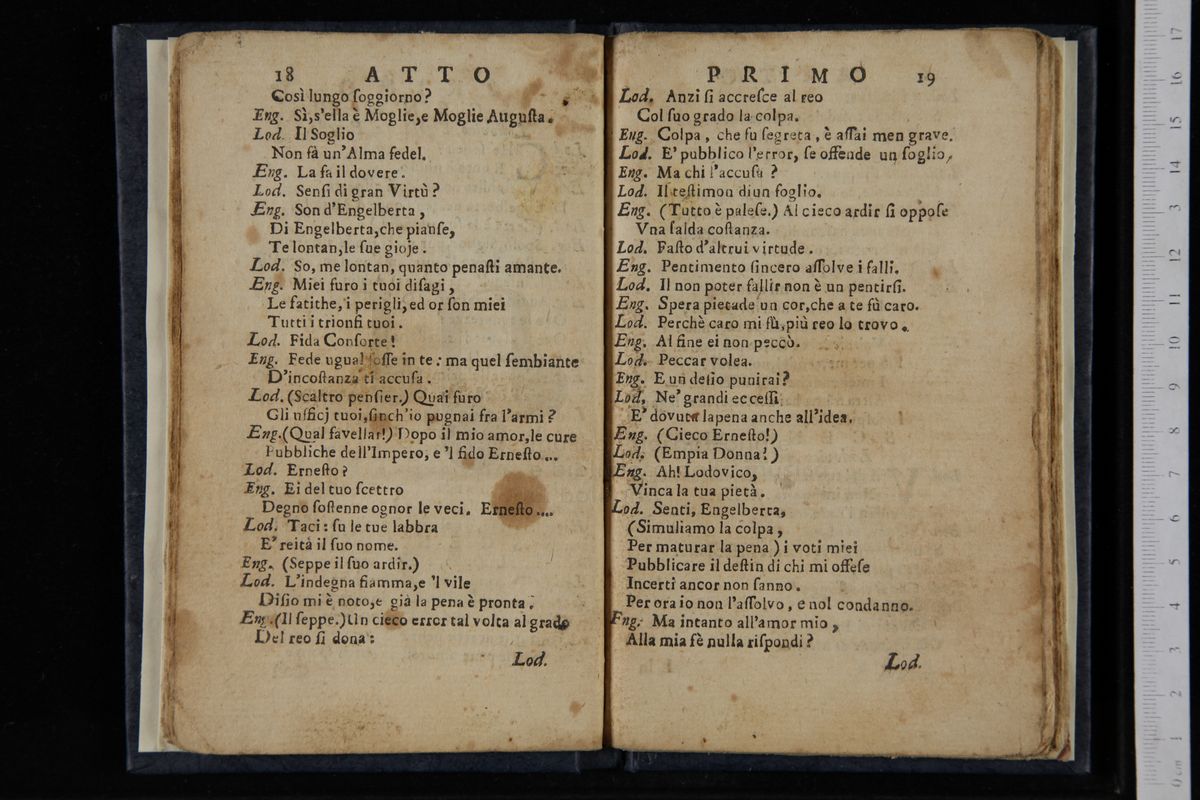 18 ATTO
Così lungo ſoggiorno?
Eng. Sì,s'ella è Moglie,e Moglie Auguſta.
Lod. Il Soglio
Non fà un'Alma fedel.
Eng. La fa il dovere.
Lod. Senſi di gran Virtù?
Eng. Son d'Engelberta,
Di Engelberta,che pianſe,
Te lontan,le ſue gioje.
Lod. So, me lontan, quanto penaſti amante.
Eng. Miei furo i tuoi diſagi,
Le fatithe,i perigli,ed or ſon miei
Tutti i trionfi tuoi.
Lod. Fida Conſorte!
Eng. Fede ugual foſſe in te: ma quel ſembiante
D'incoſtanza ti accuſa.
Lod. (Scaltro penſier.) Quai furo
Gli ufficj tuoi,ſinch'io pugnai fra l'armi?
Eng.(Qual favellar!) Dopo il mio amor,le cure
Pubbliche dell'Impero, e 'l fido Erneſto...
Lod. Erneſto?
Eng. Ei del tuo ſcettro
Degno ſoſtenne ognor le veci. Erneſto....
Lod. Taci: ſu le tue labbra
E' reità il ſuo nome.
Eng. (Seppe il ſuo ardir.)
Lod. L'indegna fiamma,e 'l vile
Diſio mi è noto,e già la pena è pronta.
Eng.(Il ſeppe.)Un cieco error tal volta al grado
Del reo ſi dona:
Lod.
PRIMO 19
Lod. Anzi ſi accreſce al reo
Col ſuo grado la colpa.
Eng. Colpa, che fu ſegreta, è aſſai men grave.
Lod. E' pubblico l'error, ſe offende un ſoglio,
Eng. Ma chi l'accuſa?
Lod. Il teſtimon di un foglio.
Eng. (Tutto è paleſe.) Al cieco ardir ſi oppoſe
Vna ſalda coſtanza.
Lod. Faſto d'altrui virtude.
Eng. Pentimento ſincero aſſolve i falli.
Lod. Il non poter fallir non è un pentirſi.
Eng. Spera pietade un cor,che a te fù caro.
Lod. Perchè caro mi fù,più reo lo trovo.
Eng. Al fine ei non peccò.
Lod. Peccar volea.
Eng. E un deſio punirai?
Lod. Ne' grandi ecceſſi
E' dovuta la pena anche all'idea.
Eng. (Cieco Erneſto!)
Lod. (Empia Donna!)
Eng. Ah! Lodovico,
Vinca la tua pietà.
Lod. Senti, Engelberta,
(Simuliamo la colpa,
Per maturar la pena) i voti miei
Pubblicare il deſtin di chi mi offeſe
Incerti ancor non ſanno.
Per ora io non l'aſſolvo, e nol condanno.
Eng. Ma intanto all'amor mio,
Alla mia fè nulla riſpondi?
Lod.